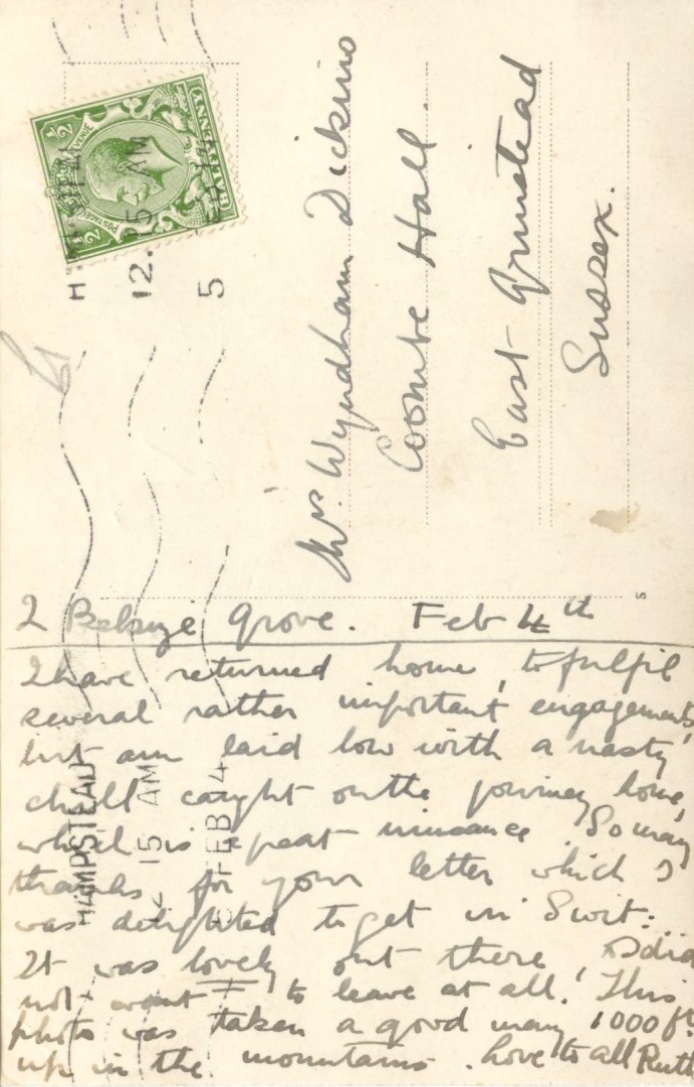 Mrs Wyndham Dickins
Coombe Hall.
East Grinstead
Sussex.
HALFPENNY
POSTAGE
REVENUE
1/2
1/2
12.15 AM
5 FEB 14
HAMPSTEAD
12.15 AM
5 FEB 14
S
2 Belsize Grove. Feb 4th
I have returned home, to fulfil
several rather important engagements,
but am laid low with a nasty
chill caught on the journey home,
which is a great nuisance. So many
thanks for your letter which I
was delighted to get in Swit:.
It was lovely out there, I did
not want to leave at all! This
photo was taken a good many 1000 ft
up in the mountains. Love to all Ruth